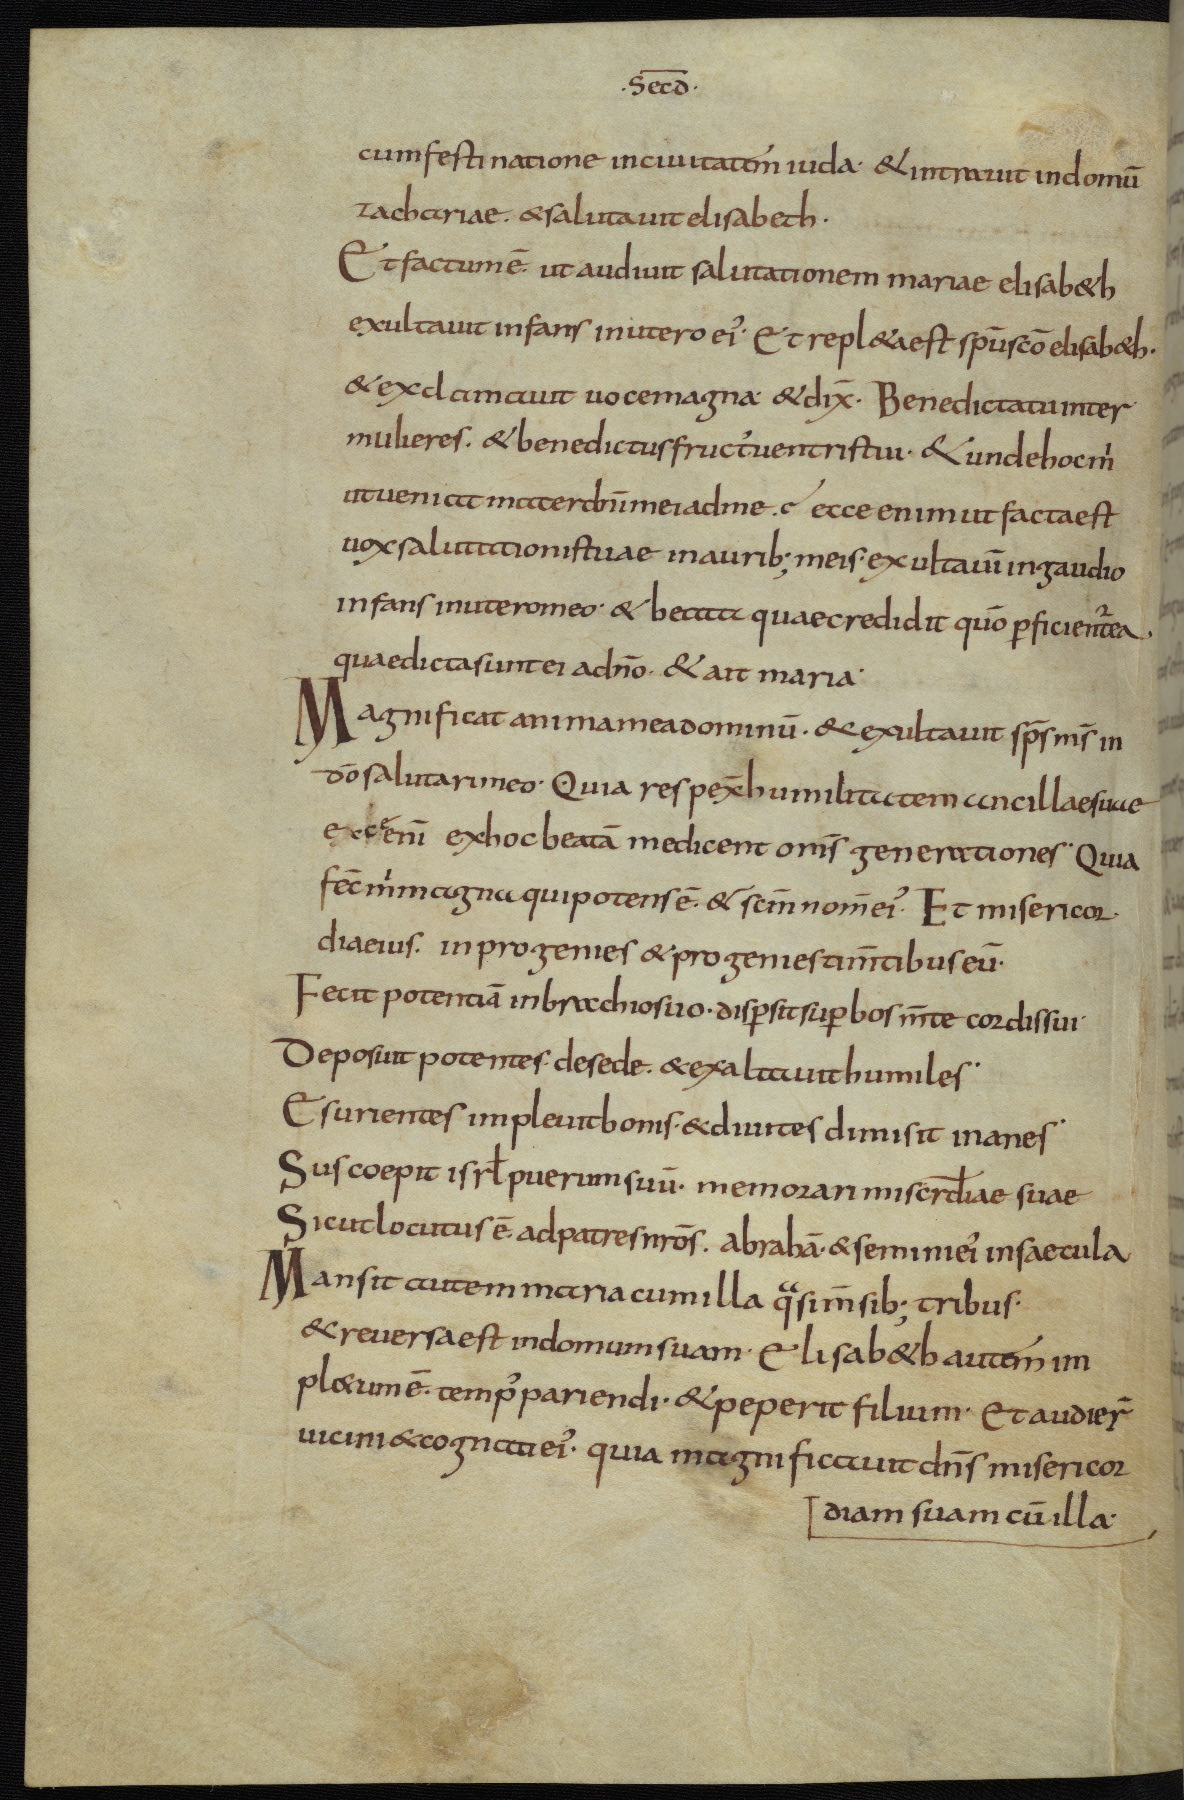 ·Secd̄·
cum festinatione in civitatem iuda· & intravit in domū
zachariae. & salutavit elisabeth·
Et factum ē· ut audivit salutationem mariae elisab&h
exultavit infans in utero ei᾽· Et repl&a est sp̄u sc̄o elisab&h·
& exclamavit voce magna & dix̄· Benedicta tu inter
mulieres. & benedictus fruct᾽ ventris tui· & unde hoc m̄
ut veniat mater dn̄i mei ad me· ecce enim ut facta est
vox salutationis tuae in aurib; meis· exultavit in gaudio
infans in utero meo· & beata quae credidit qūo ꝑficient᾽ ea·
quae dicta sunt ei a dn̄o· & ait maria·
Magnificat anima mea dominū· & exultavit sp̄s ms̄ in
dō salutari meo· Quia respex̄ humilitatem ancillae suae
ecce enī ex hoc beatā me dicent om̄s generationes· Quia
fec̄ m̄ magna qui potens ē· & sc̄m nom̄ ei᾽· Et misericor·
dia eius· in progenies & progenies tim̄tibus eū·
Fecit potentiā in brachio suo· disꝑsit suꝑbos m̄te cordis sui·
Deposuit potentes· de sede· & exaltavit humiles·
Esurientes implevit bonis· & divites dimisit inanes·
Suscoepit isrł puerum suū· memorari misc̄rdiae suae
Sicut locutus ē· ad patres nr̄os· abrahā· & semini ei᾽ in saecula
Mansit autem maria cum illa qᵃsi m̄sib; tribus·
& reversa est in domum suam· Elisab&h autem im
pl&um ē· temp᾽ pariendi· & peperit filium· Et audier̄
vicini & cognati ei᾽· quia magnificavit dn̄s misericor
diam suam cū illa·